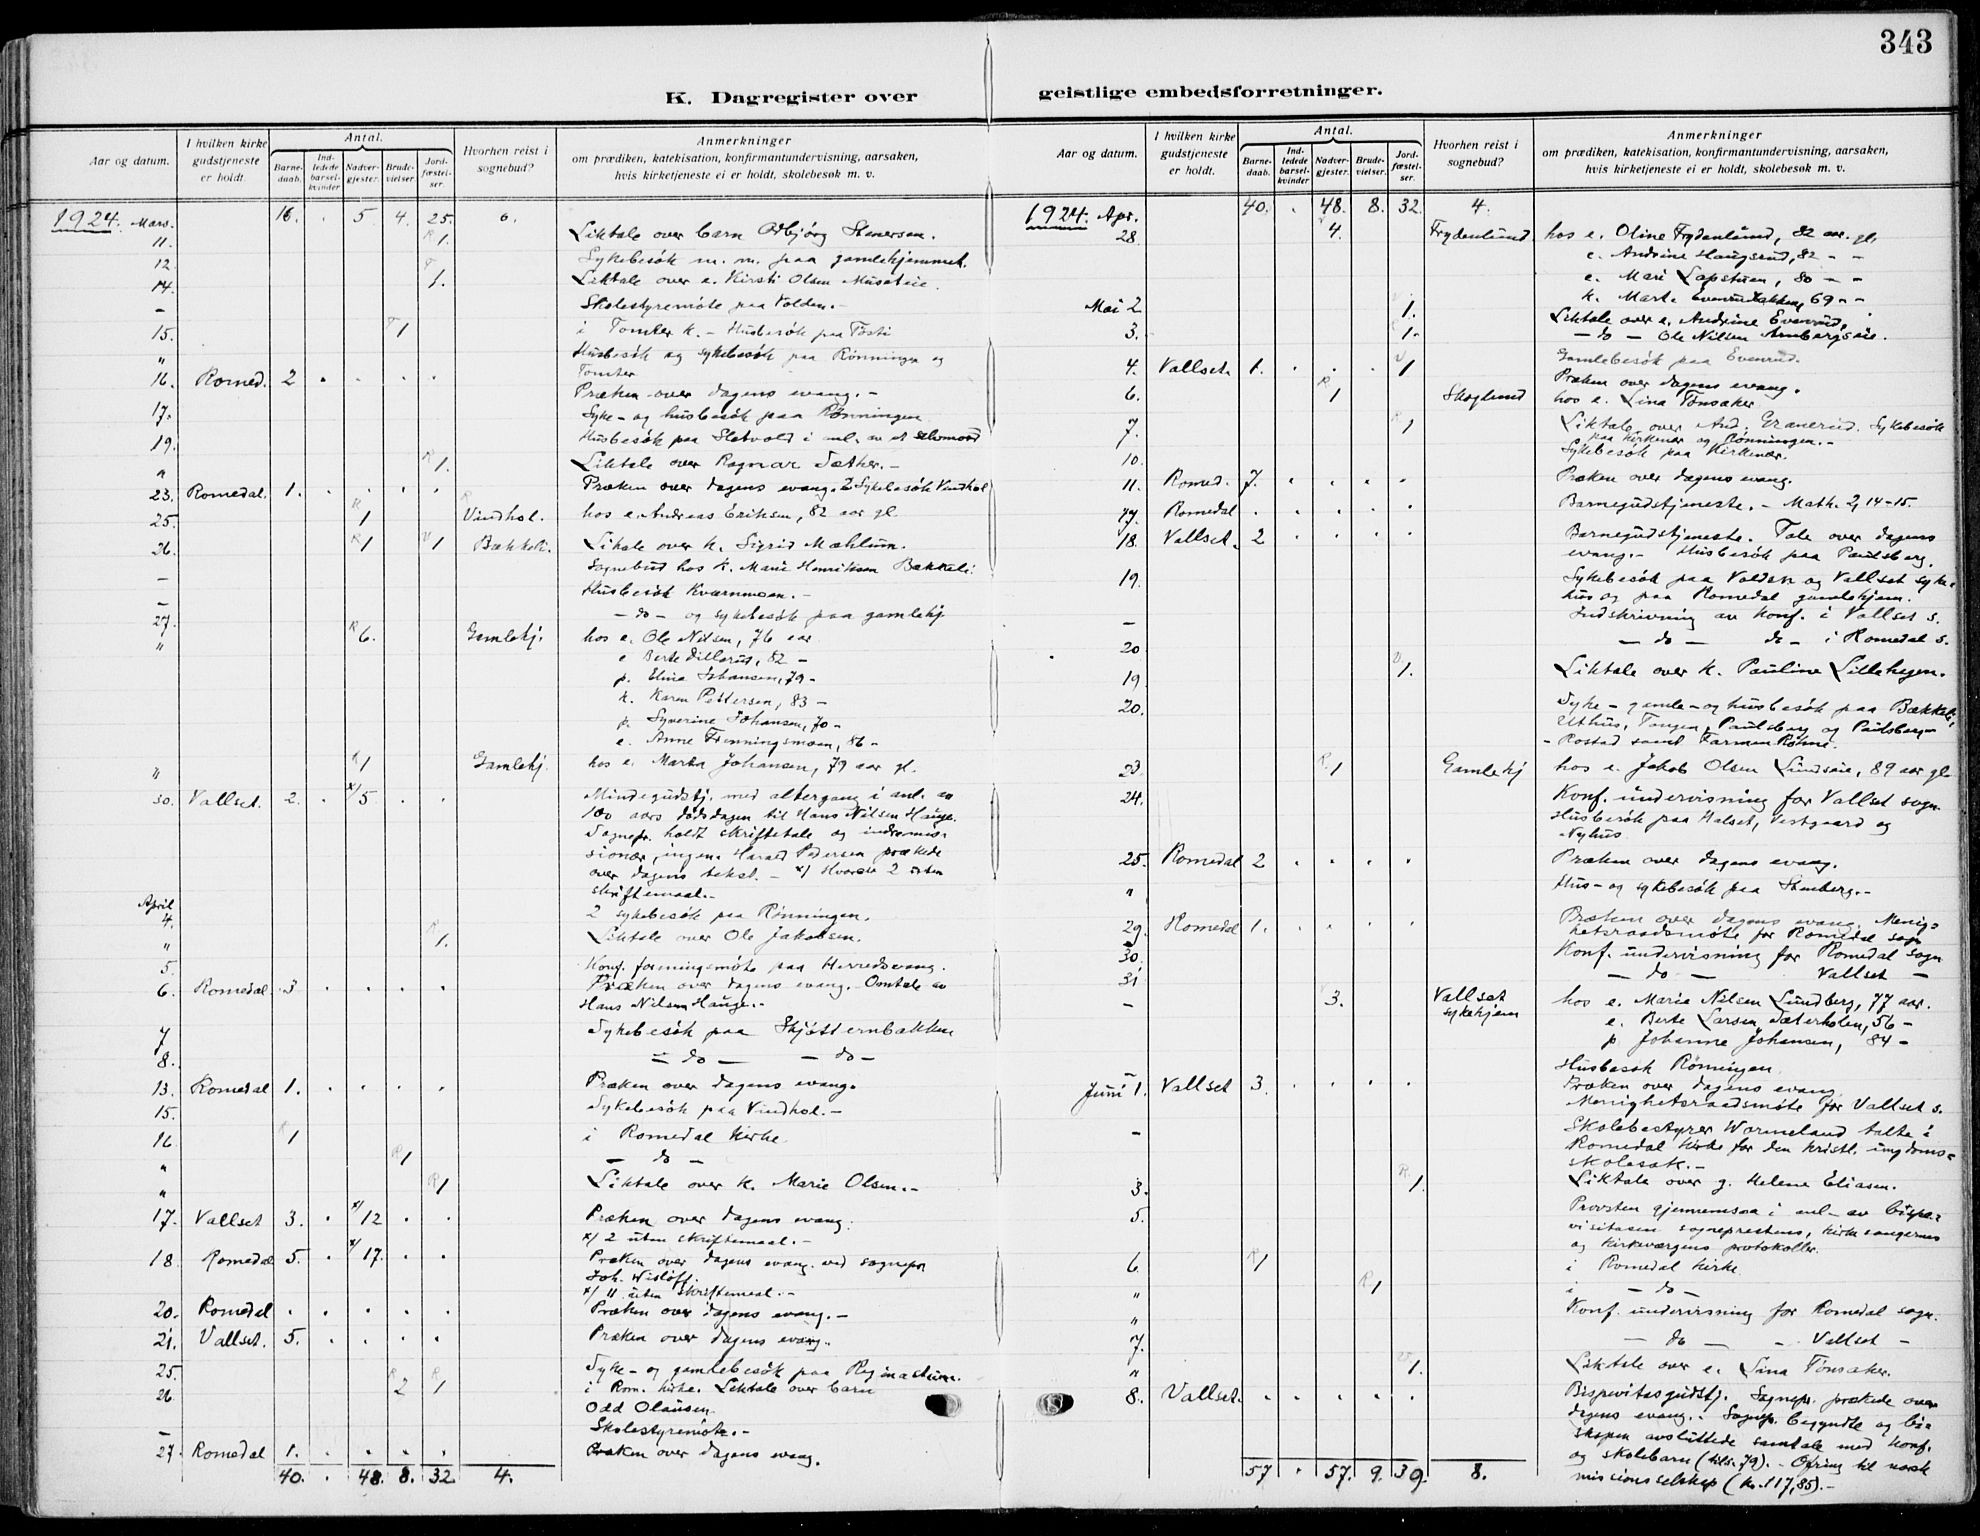 343
K. Dagregister over
geistlige embedsforretninger.
Aar og datum.
I hvilken kirke gudstjeneste er holdt.
Antal.
Barnedaab.
Indledede barselkvinder
Nadvergjester.
Brudevielser.
Jordfæstelser.
Hvorhen reist i sognebud?
Anmerkninger
om prædiken, katekisation, konfirmantundervisning, aarsaken,
hvis kirketjeneste ei er holdt, skolebesøk m. v.
1924. Mars. 16. . 5. 4. 25. 6.
11. R 1. Liktale over barn Obbjørg Stenersen.
12. Sykebesök m. m. paa gamlehjemmet.
14. 1. Liktale over e. Kirsti Olsen Museteie.
– Skolestyremöte paa Volden. –
15. 1 i Tomter k. – Husbesök paa Tosti
" Husbesök og sykebesök paa Rönningen og
Tomter
16. Romed. 2 . . . . Præken over dagens evang. –
17. Syke- og husbesök paa Rönningen
19. Husbesök paa Sletvold i anl. av et selvmord
" R 1. Liktale over Ragnar Sæther. –
23. Romedal. 1. . . . . Præken over dagens evang. 2 Sykebesök Vindhol
25. R 1 Vindhol. hos e. Andreas Eriksen, 82 aar gl
26. R 1 V 1 Bækkeli. Liktale over k. Sigrid Mæhlum.
– Sognebud hos k. Marie Henriksen Bækkeli.
– Husbesök Kværnmoen. –
27. – do – og sykebesök paa gamlehj
" R 6. Gamlehj. hos e. Ole Nilsen, 76 aar
e Berte Dillerud, 82 –
p. Elina Johansen, 79 –
k. Karen Pettersen, 83 –
p. Syverine Johansen, 70 –
e. Anne Frenningsmoen, 86 –
" R 1 Gamlehj. hos e. Marta Johansen, 79 aar gl.
30. Vallset. 2. . x/5 . . Mindegudstj. med altergang i anl. av
100 aars dödsdagen til Hans Nilsen Hauge.
Sognepr. holdt skriftetale og indremis-
sionær, ingen. Harald Pedersen prækede
over dagens tekst. – x/ Hvorav 2 uten
skriftemaal. –
April
4. 2 sykebesök paa Rönningen.
" R 1. Liktale over Ole Jakobsen.
5. Konf. foreningsmöte paa Herredsvang.
6. Romedal 3 . . . . Præken over dagens evang. Omtale av
Hans Nilsen Hauge. –
7 Sykebesök paa Skjötternbækken
8. – do – – do –
13. Romedal 1. . . . . Præken over dagens evang.
15. Sykebesök paa Vindhol. –
16 R 1 i Romedal kirke
" R 1 – do –
" R 1 Liktale over k. Marie Olsen. –
17. Vallset 3. . x/12 . . Præken over dagens evang.
x/ 2 uten skriftemaal. –
18. Romedal 5. . x/17. . . Præken over dagens evang. ved sognepr
Joh. Wislöff.
x/ 11 uten skriftemaal. –
20. Romedal . . . . . Præken over dagens evang. –
21. Vallset. 5. . . . . Præken over dagens evang.
25. Syke- og gamlebesök paa
26 R 2 R 1 i Rom. kirke. Liktale over barn
Odd Olausen
– Skolestyremöte. –
27. Romedal 1. . . . . Præken over dagens evang.
40. . 48. 8. 32 4.
Aar og datum.
I hvilken kirke gudstjeneste er holdt.
Antal.
Barnedaab.
Indledede barselkvinder
Nadvergjester.
Brudevielser.
Jordfæstelser.
Hvorhen reist i sognebud?
Anmerkninger
om prædiken, katekisation, konfirmantundervisning, aarsaken,
hvis kirketjeneste ei er holdt, skolebesøk m. v.
1924. Apr. 40. . 48. 8. 32. 4.
28. 4. Frydenlund. hos e. Oline Frydenlund, 82 aar gl.
e. Andrine Haugsrud, 82 – –
e. Mari Lapstuen, 80 – –
k. Marte Evenrudbakken, 69 – –
Mai 2 1. Liktale over e. Andrine Evenrud,
3. 1. – do – Ole Nilsen Arnbergseie.
Gamlebesök paa Evenrud.
4. Vallset. 1. . . . V 1 Præken over dagens evang.
6. R 1 Skoglund hos e. Lina Tönsaker
7. R 1 Liktale over And. Granerud. Sykebesök
paa Kirkenær og Rönningen. –
10. Sykebesök paa Kirkenær.
11. Romed. 7. . . . . Præken over dagens evang.
17. Romedal . . . . . Barnegudstjeneste. – Math. 2, 14-15.
18. Vallset. 2 . . . . Barnegudstjeneste. Tale over dagens
evang. – Husbesök paa Paulsberg.
19. Sykebesök paa Volden og Vallset syke-
hus og paa Romedal gamlehjem.
– Indskrivning av konf. i Vallset s.
20 – do – do – i Romedal s.
19. V 1. Liktale over k. Pauline Lillehagen.
20. Syke – gamle – og husbesök paa Bækkeli,
Uthus, Tangen, Paulsberg og Paulsberg-
– Rostad samt Farmen Röhne.
23 R 1 Gamlehj hos e. Jakob Olsen Lundseie, 89 aar gl
24. Konf. undervisning for Vallset sogn.
Husbesök paa Halset, Vestgaard og
Nyhus
25. Romedal 2 . . . . Præken over dagens evang.
" Hus- og sykebesök paa Stenberg. –
29. Romedal 1. . . . . Præken over dagens evang. Menig-
hetsraadsmöte for Romedal sogn
30. Konf. undervisning for Romedal sogn
31 – do – Vallset –
– 3. Vallset sykehjem hos e. Marie Nilsen Lundberg, 77 aar.
e. Berte Larsen Sæterholen, 56 –
p. Johanne Johansen, 84 –
– Husbesök Rönningen
Juni 1. Vallset 3. . . . . Præken over dagens evang
Menighetsraadsmöte for Vallset s.
– Skolebestyrer Wormeland talte i
Romedal kirke for den kristl. ungdoms-
skolesak. –
3. R. 1. Liktale over g. Helene Eliasen.
5. Provsten gjennemsaa i anl. av bispe-
visitasen sogneprestens, kirkesangernes
og kirkeværgens protokoller.
6. R 1 i Romedal kirke
" R 1 i – do –
" Konf. undervisning for Romedal sogn.
7. – do – – Vallset –
" 1. Liktale over e. Lina Tönsaker.
8. Vallset. . . . . . Bispevitasgudstj. Sognepr. prækede over
dagens evang. Sognepr. begyndte og bi-
skopen avsluttede samtale med konf.
og skolebarn (tils. 79). – Ofring til norsk
missionsselskap (kr. 117,85). –
57 . 57. 9. 39. 8.